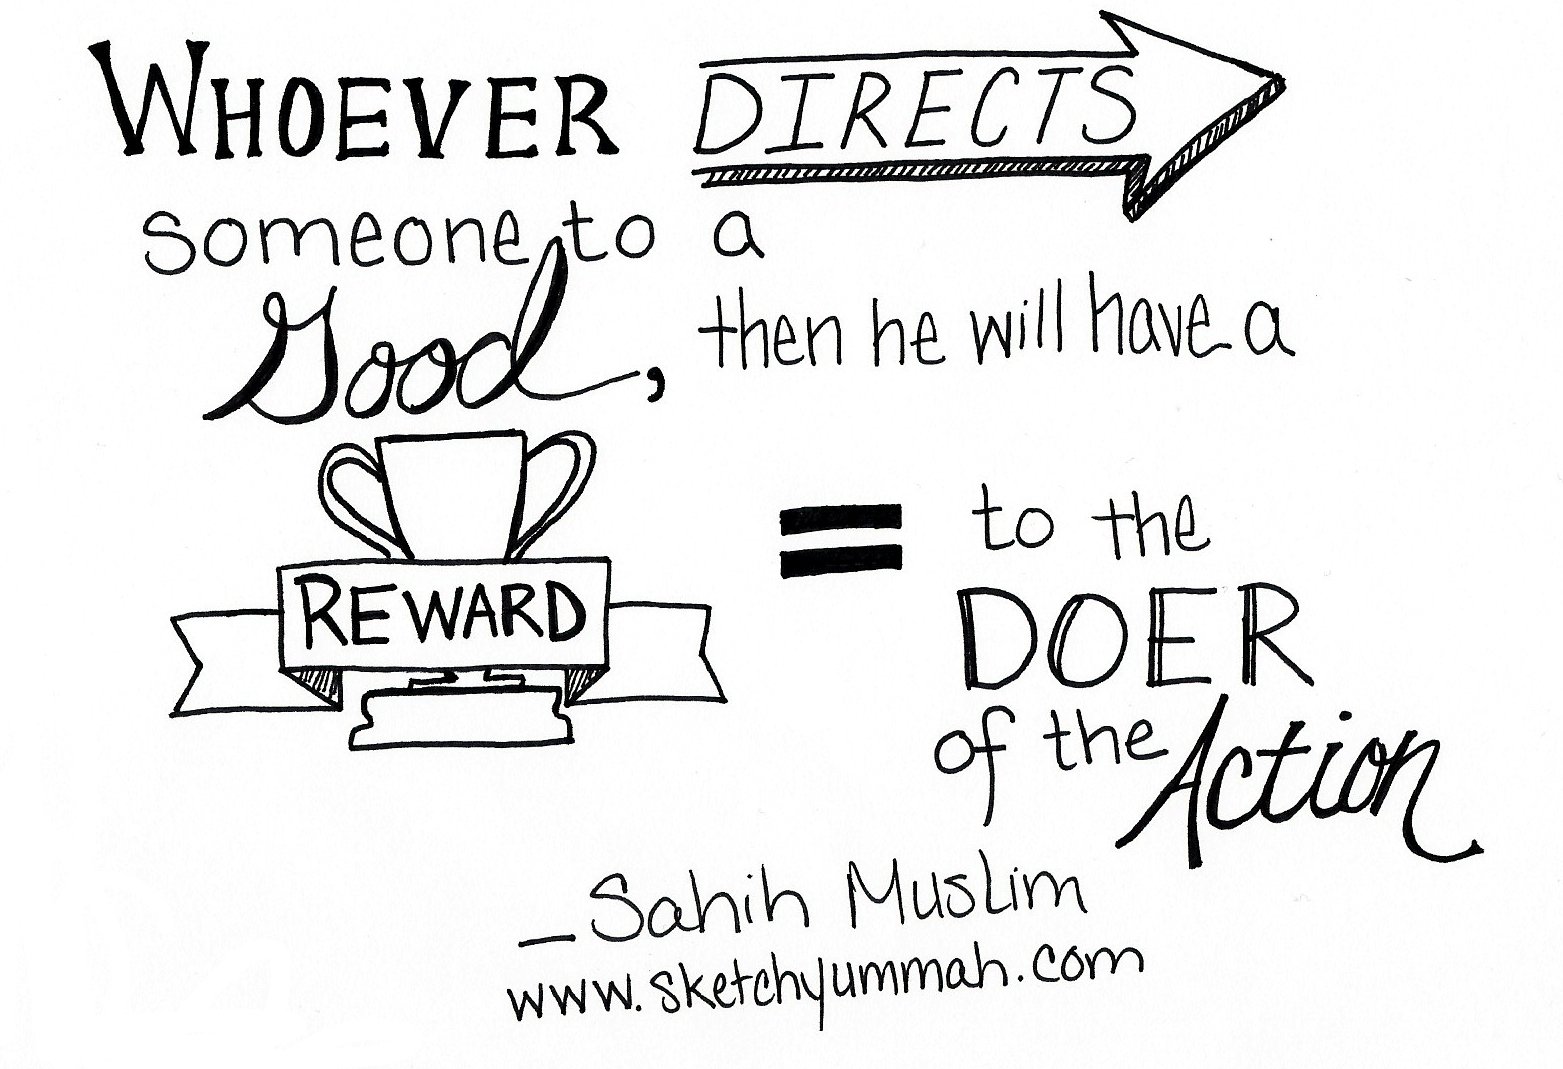 WHOEVER DIRECTS
someone to a
Good, then he will have a
REWARD = to the
DOER
of the Action
_Sahih Muslim
www.sketchyummah.com